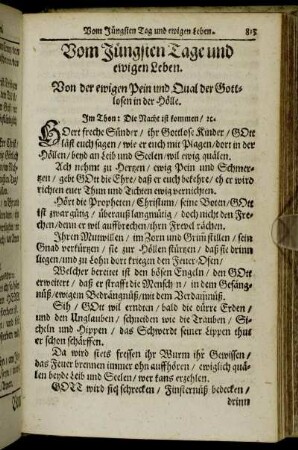 Vom Jüngsten Tag und ewigen Leben. 813
Vom Jüngsten Tage und
ewigen Leben.
Von der ewigen Pein und Qual der Gott-
losen in der Hölle.
Im Thon: Die Nacht ist kommen/ ꝛc.
HOert freche Sünder/ ihr Gottlose Kinder/ GOtt
läst euch sagen/ wie er euch mit Plagen/ dort in der
Höllen/ beyd an Leib und Seelen/ wil ewig quälen.
Ach nehmt zu Hertzen/ ewig Pein und Schmer-
tzen/ gebt GOtt die Ehr/ daß er euch bekehre/ eh er wird
richten euer Thun und Tichten ewig vernichten.
Hört die Propheten/ Christum/ seine Boten/ GOtt
ist zwar gütig/ überauß langmütig/ doch nicht den Fre-
chen/ denn er wil außbrechen/ ihrn Frevel rächen.
Ihren Munwillen/ im Zorn und Grimm stillen/ sein
Gnad verkürtzen/ sie zur Höllen stürtzen/ daß sie drinn
liegen/ und zu Lohn dort kriegen den Feuer-Ofen/
Welcher bereitet ist den bösen Engeln/ den GOtt
erweitert/ daß er straffe die Menschen/ in dem Gefäng-
nüß/ ewigem Bedrängnüß/ mit dem Verdamnüß.
Sih/ GOtt wil erndten/ bald die dürre Erden/
und den Unglauben/ schneiden wie die Trauben/ Si-
cheln und Hippen/ das Schwerdt seiner Lippen thut
er schon schärffen.
Da wird stets fressen ihr Wurm ihr Gewissen/
das Feuer brennen immer ohn auffhören/ ewiglich quä-
len beyde Leib und Seelen/ wer kans erzehlen.
GOTT wird sie schrecken/ Finsternüß bedecken/
drinn